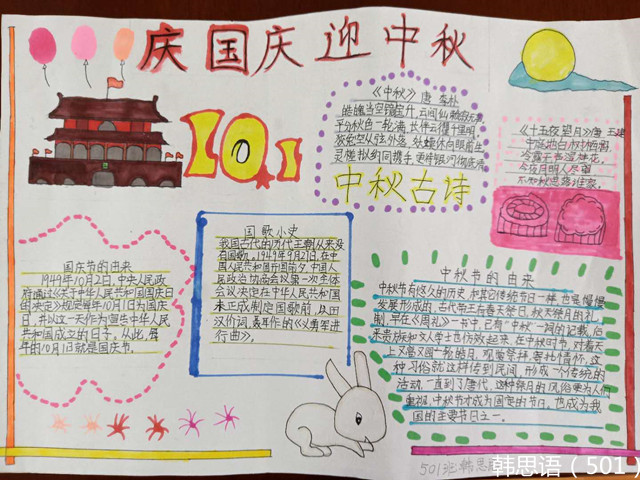 庆国庆迎中秋
10.1
《中秋》唐 李朴
皓魄当空宝镜升,云间仙籁寂无声
平分秋色一轮满,长伴云衢千里明
狡兔空从弦外落,妖蟆休向眼前生
灵槎拟约同携手,更待银河彻底清
中秋古诗
《十五夜望月》唐 王建
中庭地白树栖鸦,
冷露无声湿桂花。
今夜月明人尽望
不知秋思落谁家。
国庆节的由来
1949年10月2日,中央人民政
府通过《关于中华人民共和国国庆日
的决定》规定每年10月1日为国庆
日,并以这一天作为宣告中华人民
共和国成立的日子。从此,每
年的10月1日就是国庆节。
国歌小史
我国古代的历代王朝从来没
有国歌。1949年9月21日,在中
国人民共和国开国前夕,中国人
民政治协商会议第一次全体
会议决定在中华人民共和国
未正式制定国歌前,以田
汉作词,聂耳作的《义勇军进
行曲》。
中秋节的由来
中秋节有悠久的历史,和其它传统节日一样,也是慢慢
发展形成的,古代帝王有春天祭日,秋天祭月的礼
制,早在《周礼》一书中,已有“中秋”一词的记载,后
来贵族和文人学士也仿效起来,在中秋时节,对着天
上又亮又圆一轮皓月,观赏祭拜,寄托情怀,这
种习俗就这样传到民间,形成一个传统的
活动,一直到了唐代,这种祭月的风俗更为人们
重视,中秋节才成为固定的节日,也成为我
国的主要节日之一。
501班 韩思语
韩思语(501)